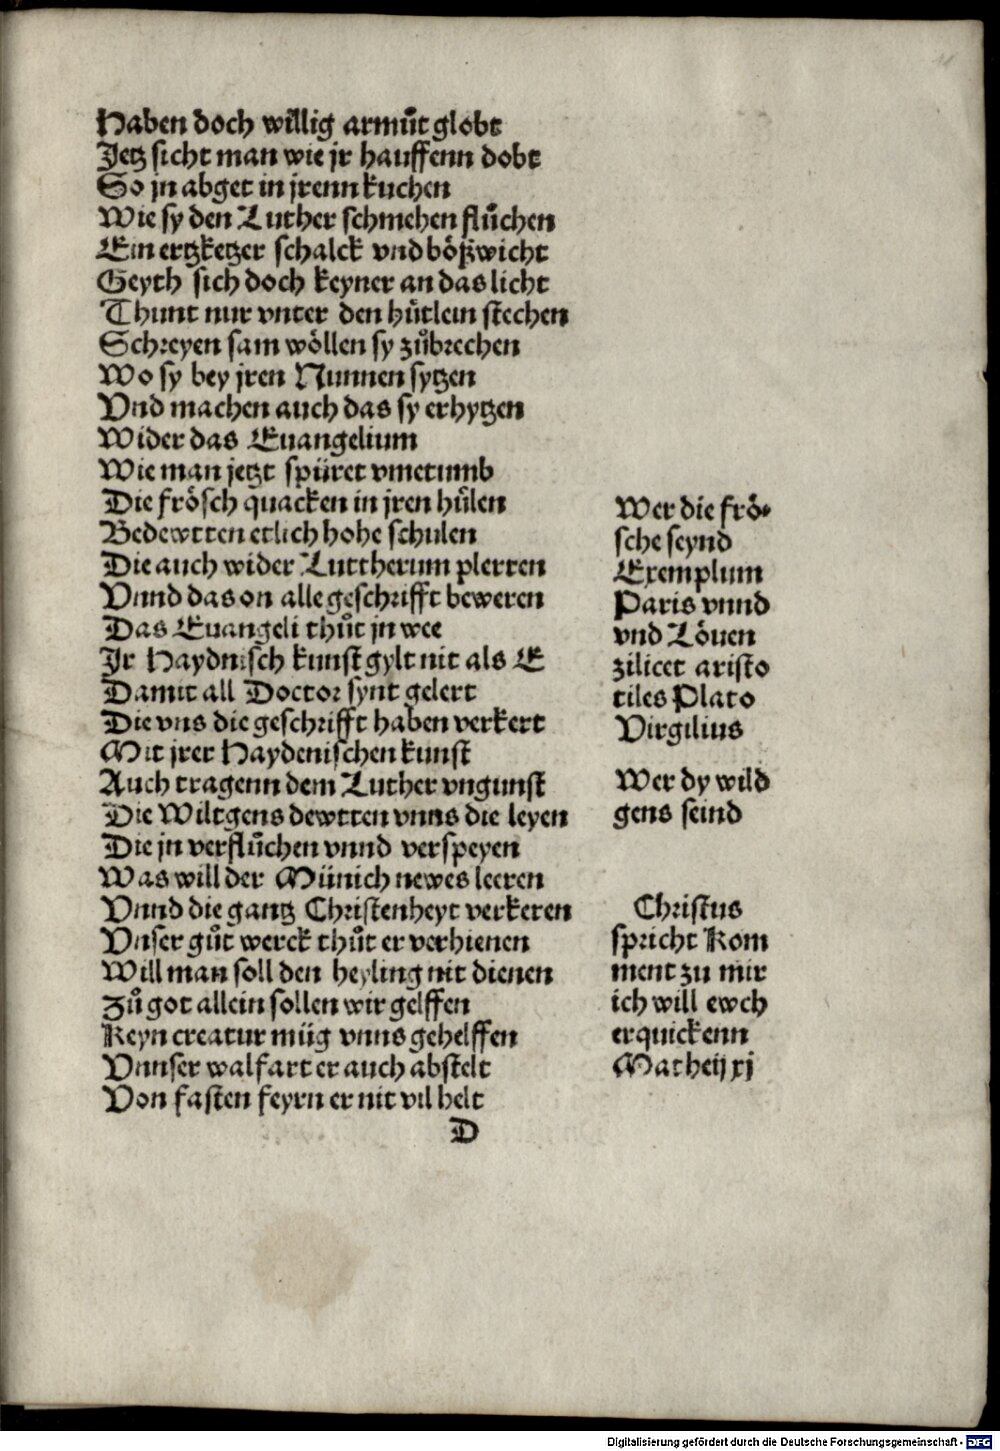 Haben doch willig armůt globt
Jetz sicht man wie jr hauffenn dobt
So jn abget in jrenn kuchen
Wie sy den Luther schmehen flůchen
Ein ertzketzer schalck vnd bößwicht
Geyth sich doch keyner an das licht
Thunt nur vnter den hůtlein stechen
Schreyen sam wöllen sy zůbrechen
Wo sy bey jren Nunnen sytzen
Vnd machen auch das sy erhytzen
Wider das Euangelium
Wie man jetzt spüret vmetumb
Die frösch quacken in jren hůlen
Bedewtten etlich hohe schulen
Die auch wider Luttherum plerren
Vnnd das on alle geschrifft beweren
Das Euangeli thůt jn wee
Jr Haydnisch kunst gylt nit als E
Damit all Doctor synt gelert
Die vns die geschrifft haben verkert
Mit jrer Haydenischen kunst
Auch tragenn dem Luther vngunst
Die Wiltgens dewtten vnns die leyen
Die jn verflůchen vnnd verspeyen
Was will der Münich newes leeren
Vnnd die gantz Christenheyt verkeren
Vnser gůt werck thůt er verhienen
Will man soll den heyling nit dienen
Zů got allein sollen wir gelffen
Keyn creatur müg vnns gehelffen
Vnnser walfart er auch abstelt
Von fasten feyrn er nit vil helt
D
Wer die frö-
sche seynd
Exemplum
Paris vnnd
vnd Löuen
zilicet aristo
tiles Plato
Virgilius
Wer dy wild
gens seind
Christus
spricht Kom
ment zu mir
ich will ewch
erquickenn
Matheij xj
Digitalisierung gefördert durch die Deutsche Forschungsgemeinschaft - DFG